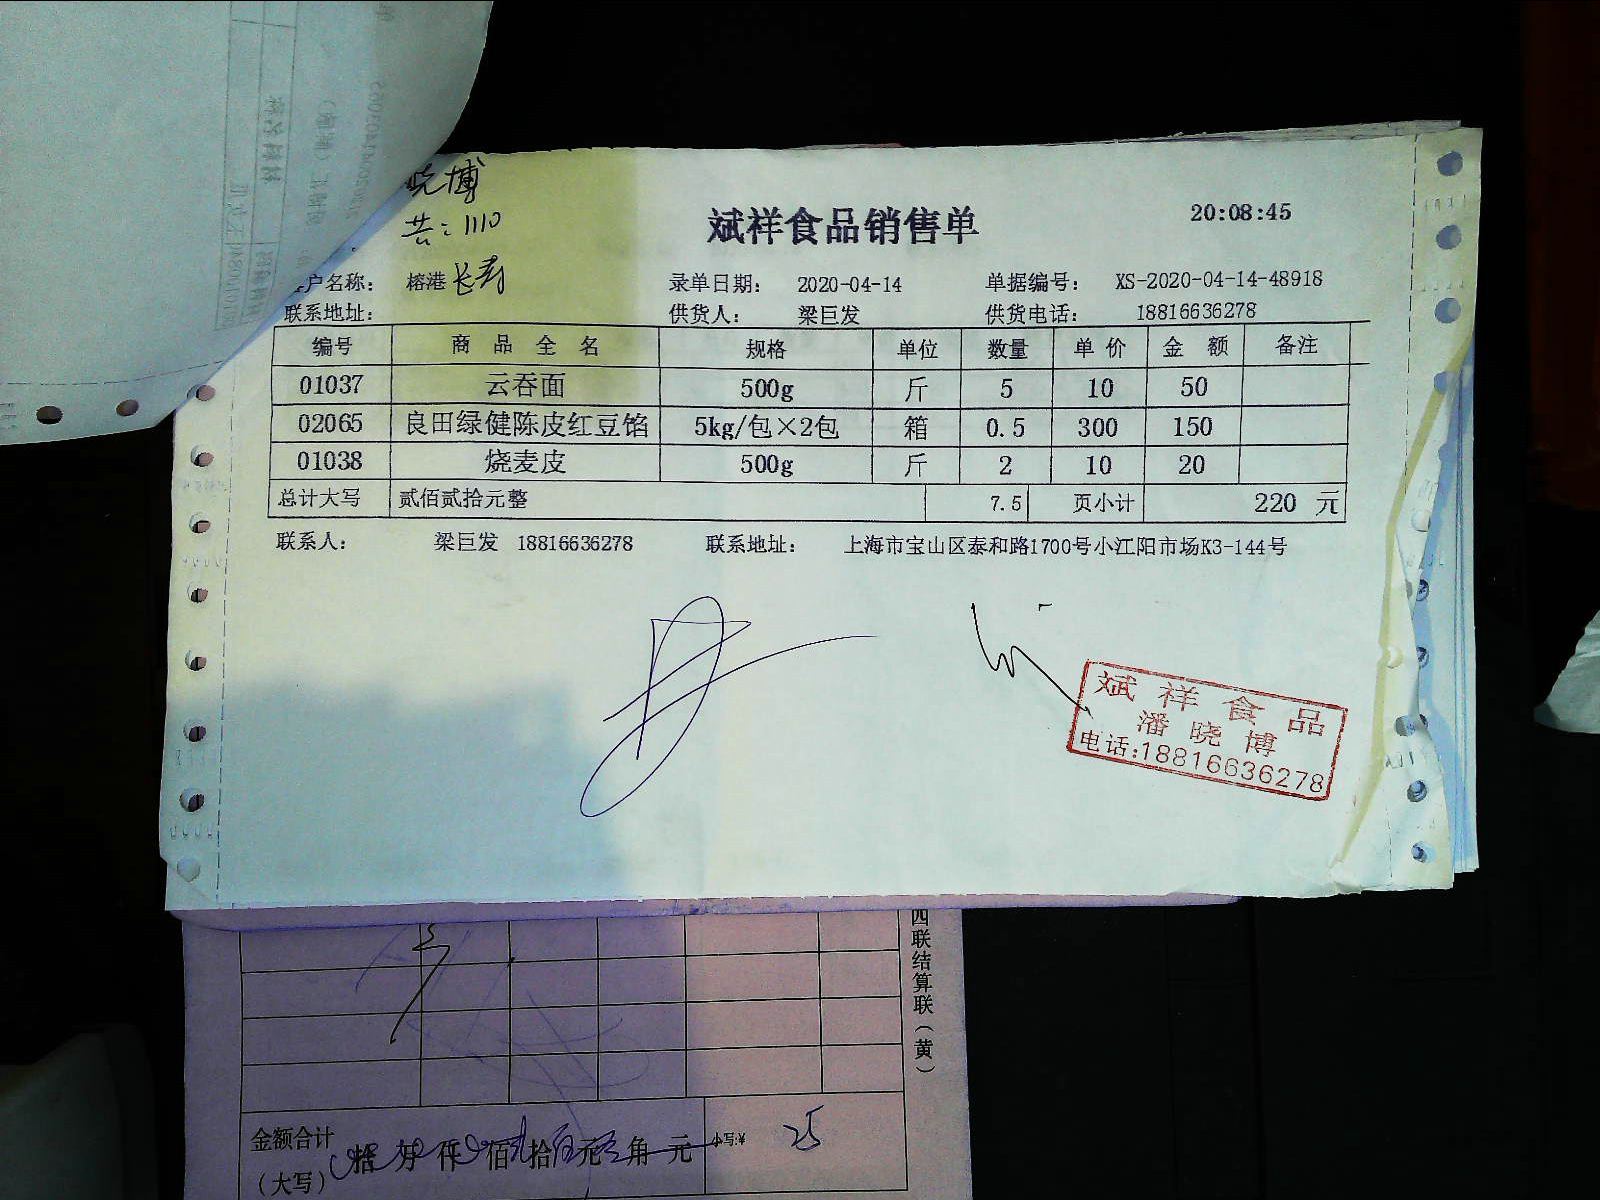 晓博
共:1110
斌祥食品销售单
20:08:45
户名称: 榕港长寿 录单日期: 2020-04-14 单据编号: XS-2020-04-14-48918
联系地址: 供货人: 梁巨发 供货电话: 18816636278
编号 商品全名 规格 单位 数量 单价 金额 备注
01037 云吞面 500g 斤 5 10 50
02065 良田绿健陈皮红豆馅 5kg/包×2包 箱 0.5 300 150
01038 烧麦皮 500g 斤 2 10 20
总计大写 贰佰贰拾元整 7.5 页小计 220 元
联系人: 梁巨发 18816636278 联系地址: 上海市宝山区泰和路1700号小江阳市场K3-144号
斌祥食品
潘晓博
电话:18816636278
四联结算联(黄)
金额合计
(大写) 拾 万 仟 佰 拾 元 角 元 小写:¥ 25